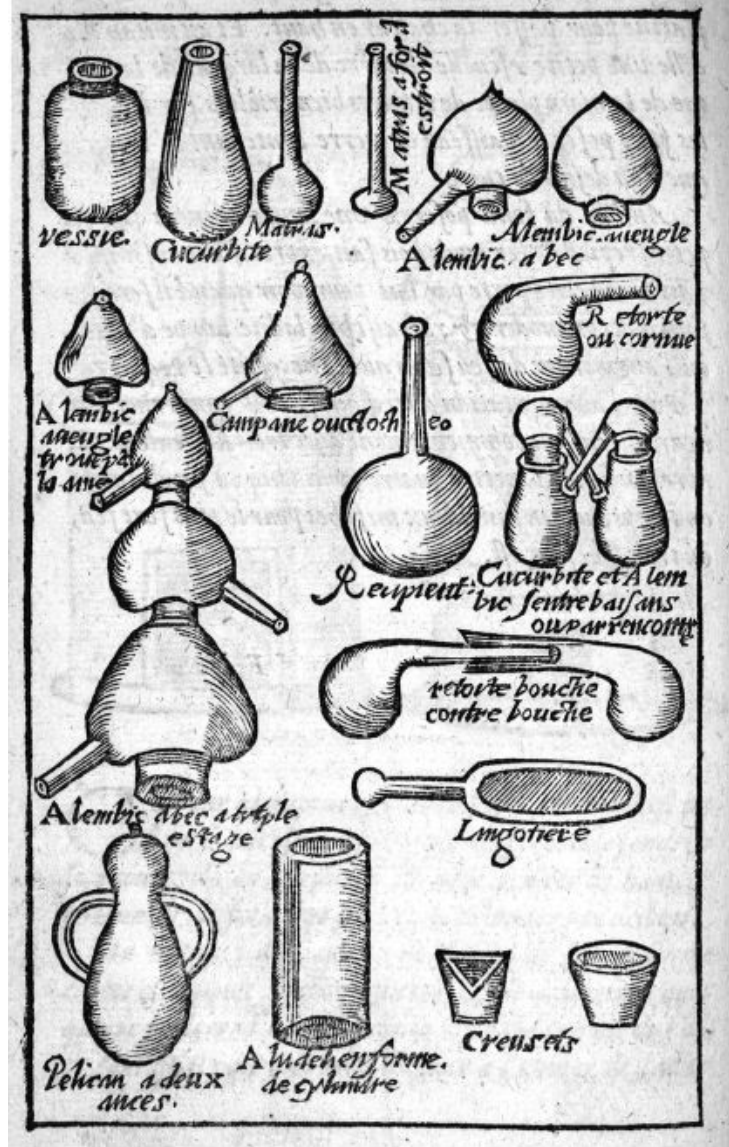 vessie.
Cucurbite
Matras.
Matras a for.l
estroit
Alembic. aueugle
Alembic. a bec
Retorte
ou cornue
Alembic
aueugle
troue pa
la ame
Campane ou cloche.
Recipient.
Cucurbite et Alem
bic sentrebaisans
ou par rencontre
retorte bouche
contre bouche
Alembic abec a triple
estage
Lingotiere
Pelican a deux
ances.
Aludel en forme.
de cylindre
Creusets